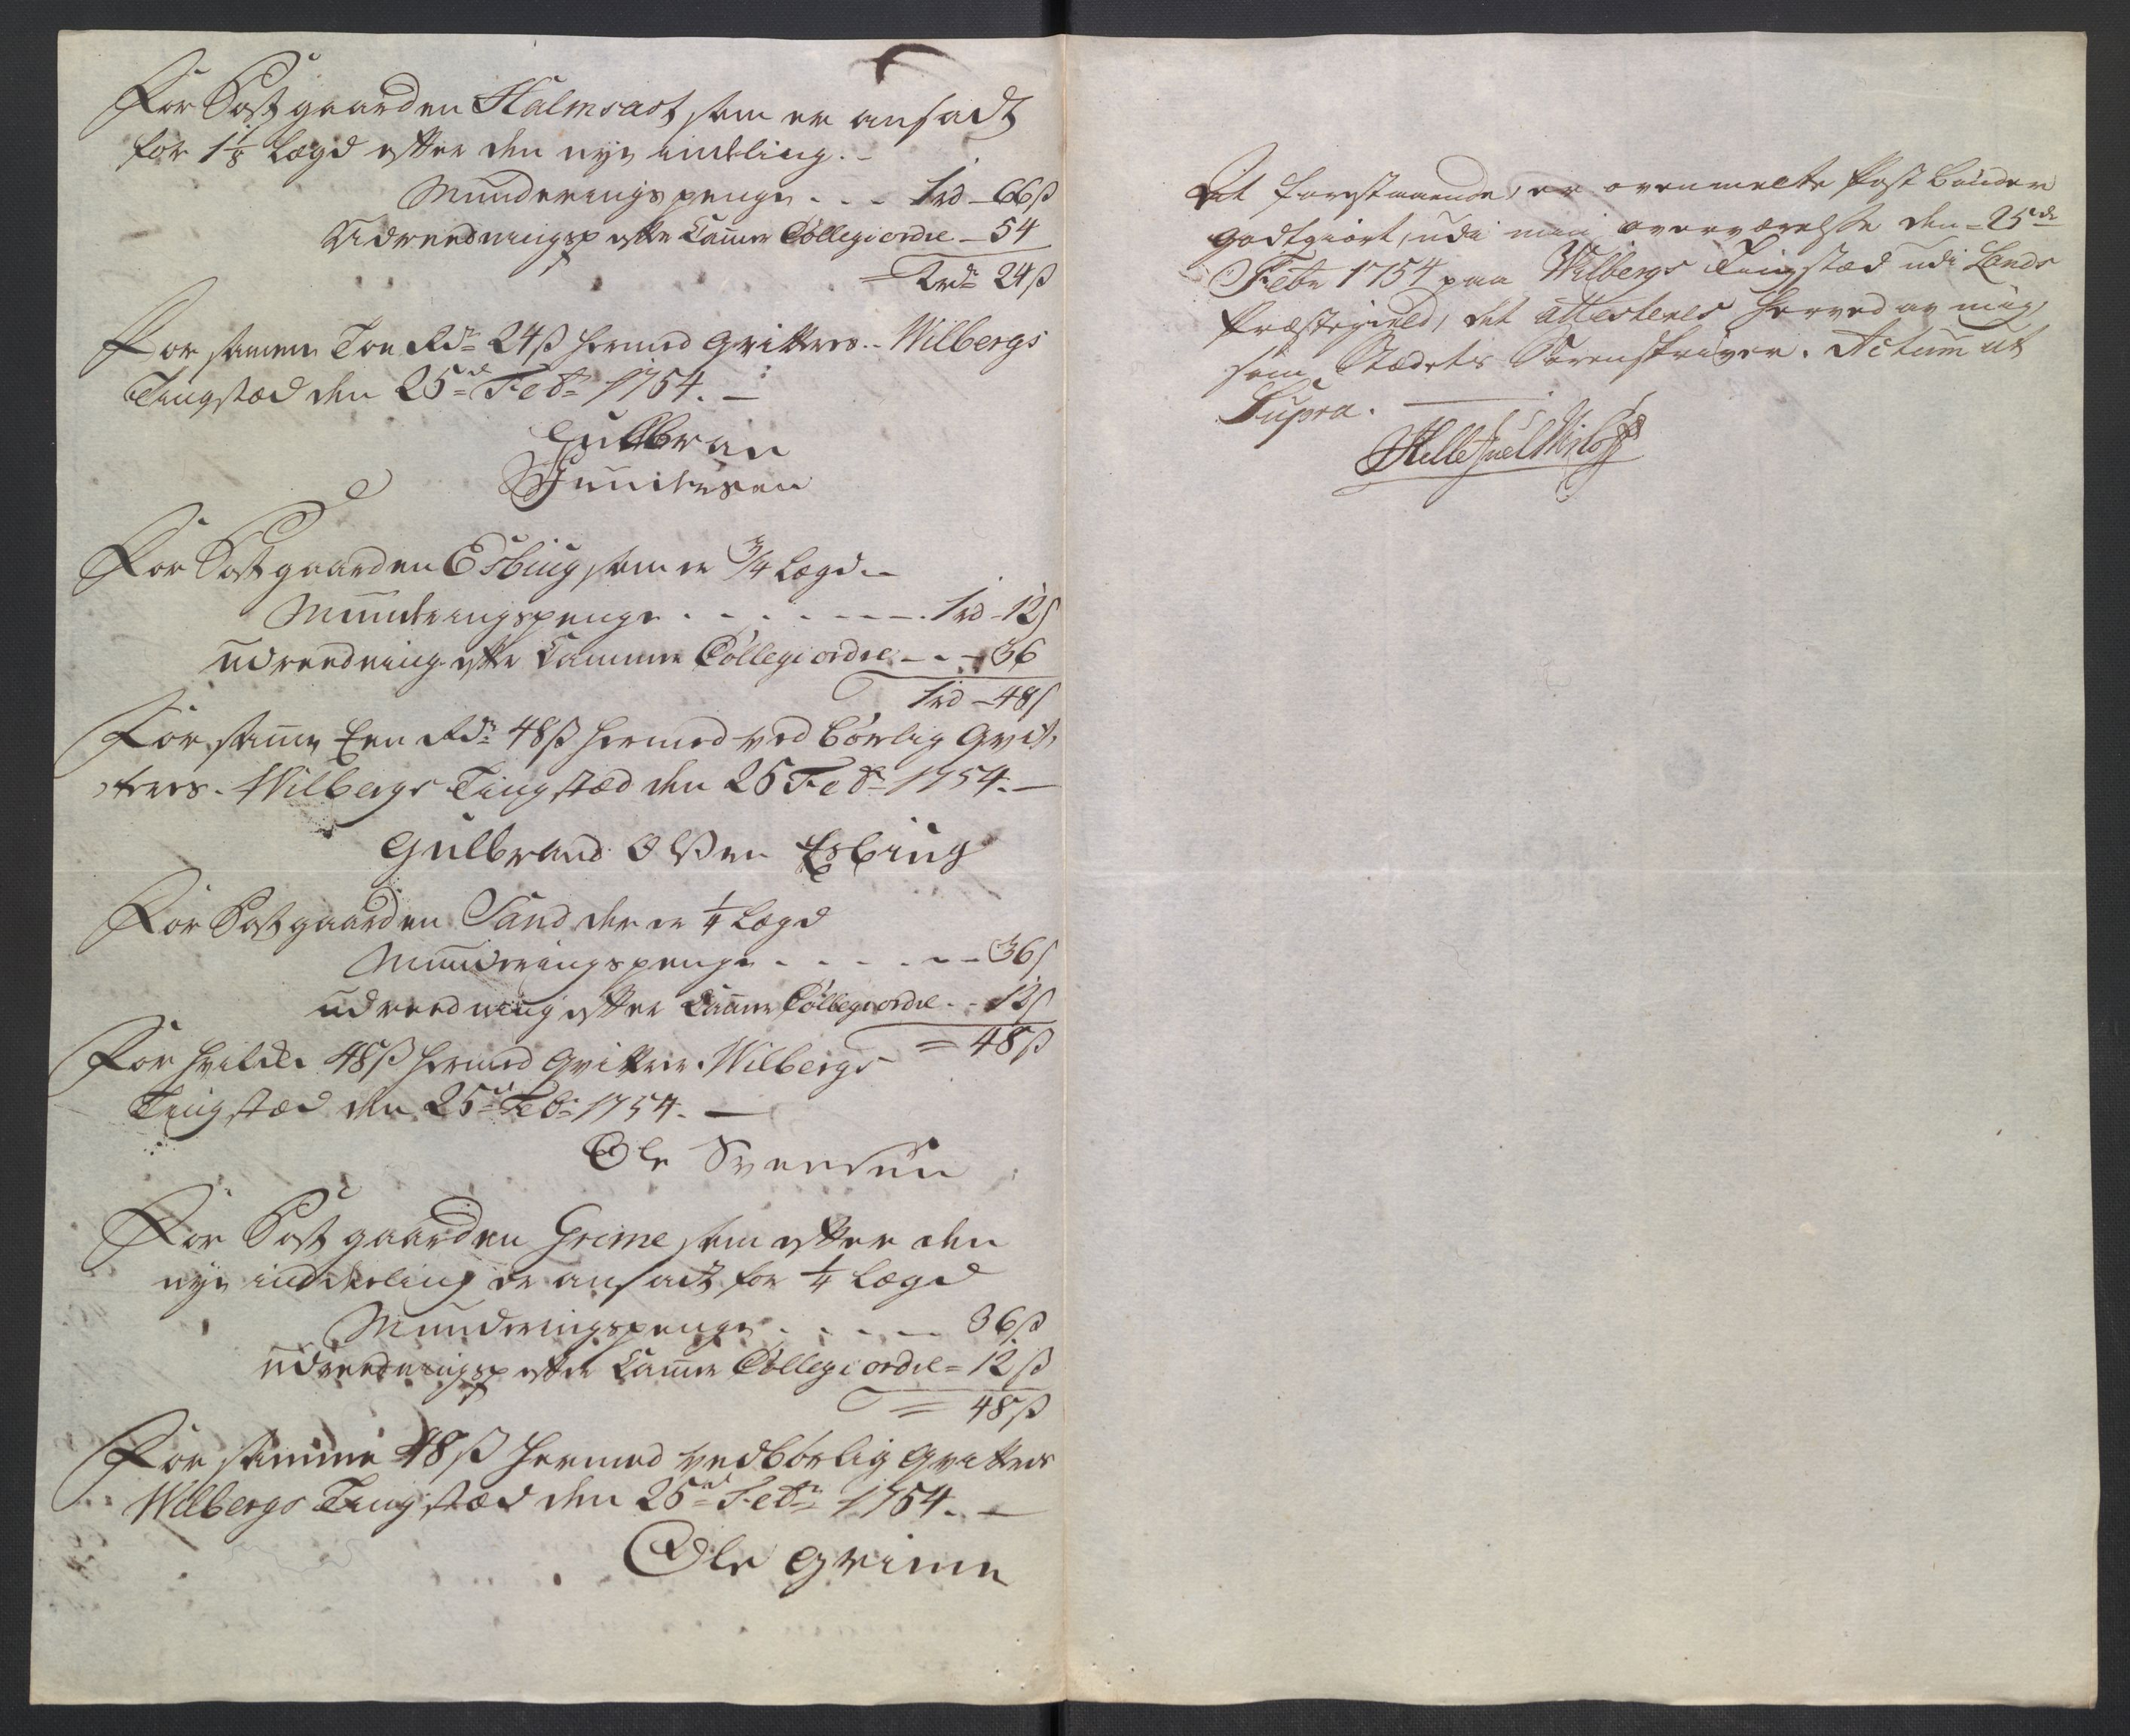 For Postgaarden Halmrast som er ansadt
for 1 1/8 Lægd efter den nye indeling. –
Munderings penge . . – 1 rd – 66 ß
Udreednings p efter Camer Collegi ordre – 54
= 2 rdr 24 ß
For samme Toe Rdr 24 ß hermed qvitteres. – Wilbergs
Tingstæd den 25de Febr 1754. –
Gulbran
For Postgaarden Esbiug som er 3/4 Lægd –
Munderingspenge . . . . – – 1 rd – 12 ß
udreedning efter Cammer Collegi ordre – – 36
1 rd – 48 ß
For samme Een Rdr 48 ß hermed ved børlig qvit,
teres. Wilbergs Tingstæd den 25 Febr 1754. –
Gulbrand Olsen Esbiug
For Postgaarden Sand der er 1/4 Lægd
Munderingspenge . . . . . – – 36 ß
udreedning efter Camer Collegi ordre . – 12 ß
= 48 ß
For hvilcke 48 ß hermed qvittere. Wilbergs
Tingstæd den 25de Febr 1754. –
Ole Svensen
For Postgaarden Grime som efter den
nye inddeeling er ansadt for 1/4 Lægd
Munderingspenge . . . – – 36 ß
udreednings p efter Camer Collegi ordre = 12 ß
= 48 ß
For samme 48 ß hermed vedbørlig qvitteres
Wilbergs Tingstæd den 25de Febr 1754. –
Ole Grime
At forestaaende, er ovenmelte Post bønder
godtgiort, udi min overværelse den 25de
Febr 1754 paa Wilbergs Tingstæd udi Lands
Præstegield, det attesteres herved av mig,
som Stædets Sorenskriver. Actum ut
Supra. –